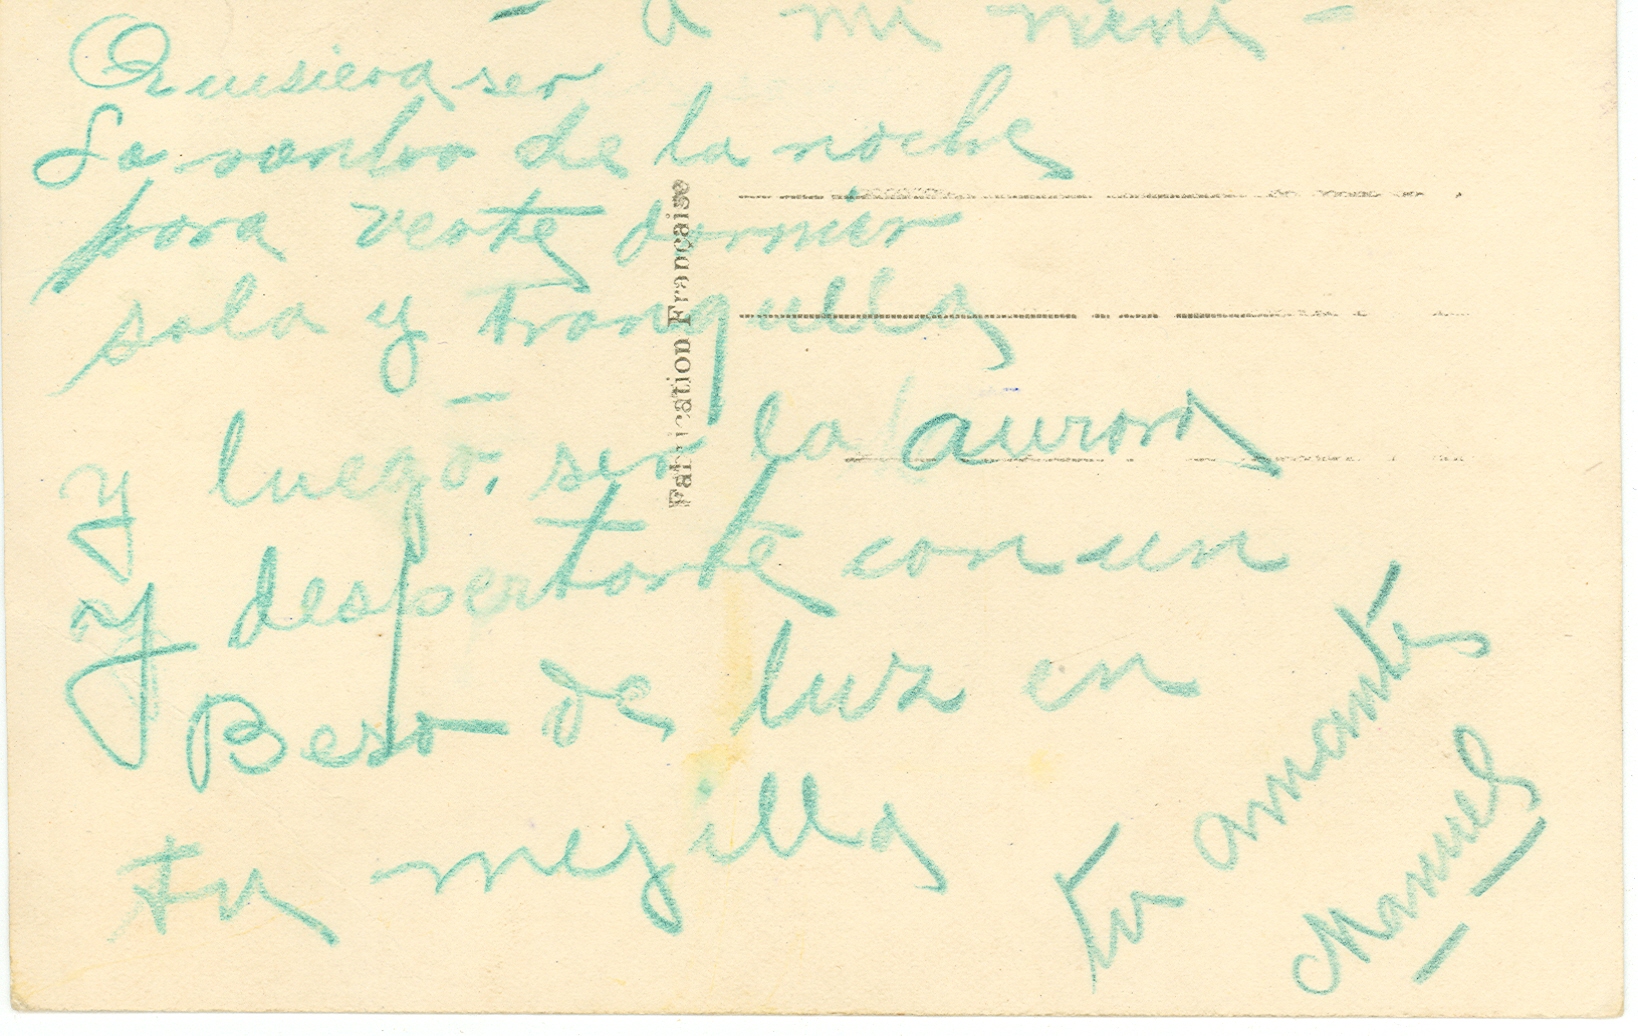 - A mi nena -
Quisiera ser
La sombra de la noche
para verte dormir
sola y tranquilla
y luego, ser la aurora
y despertarte con un
Beso de luz en
tu mejilla
Tu amante
Manuel
Fabrication Française